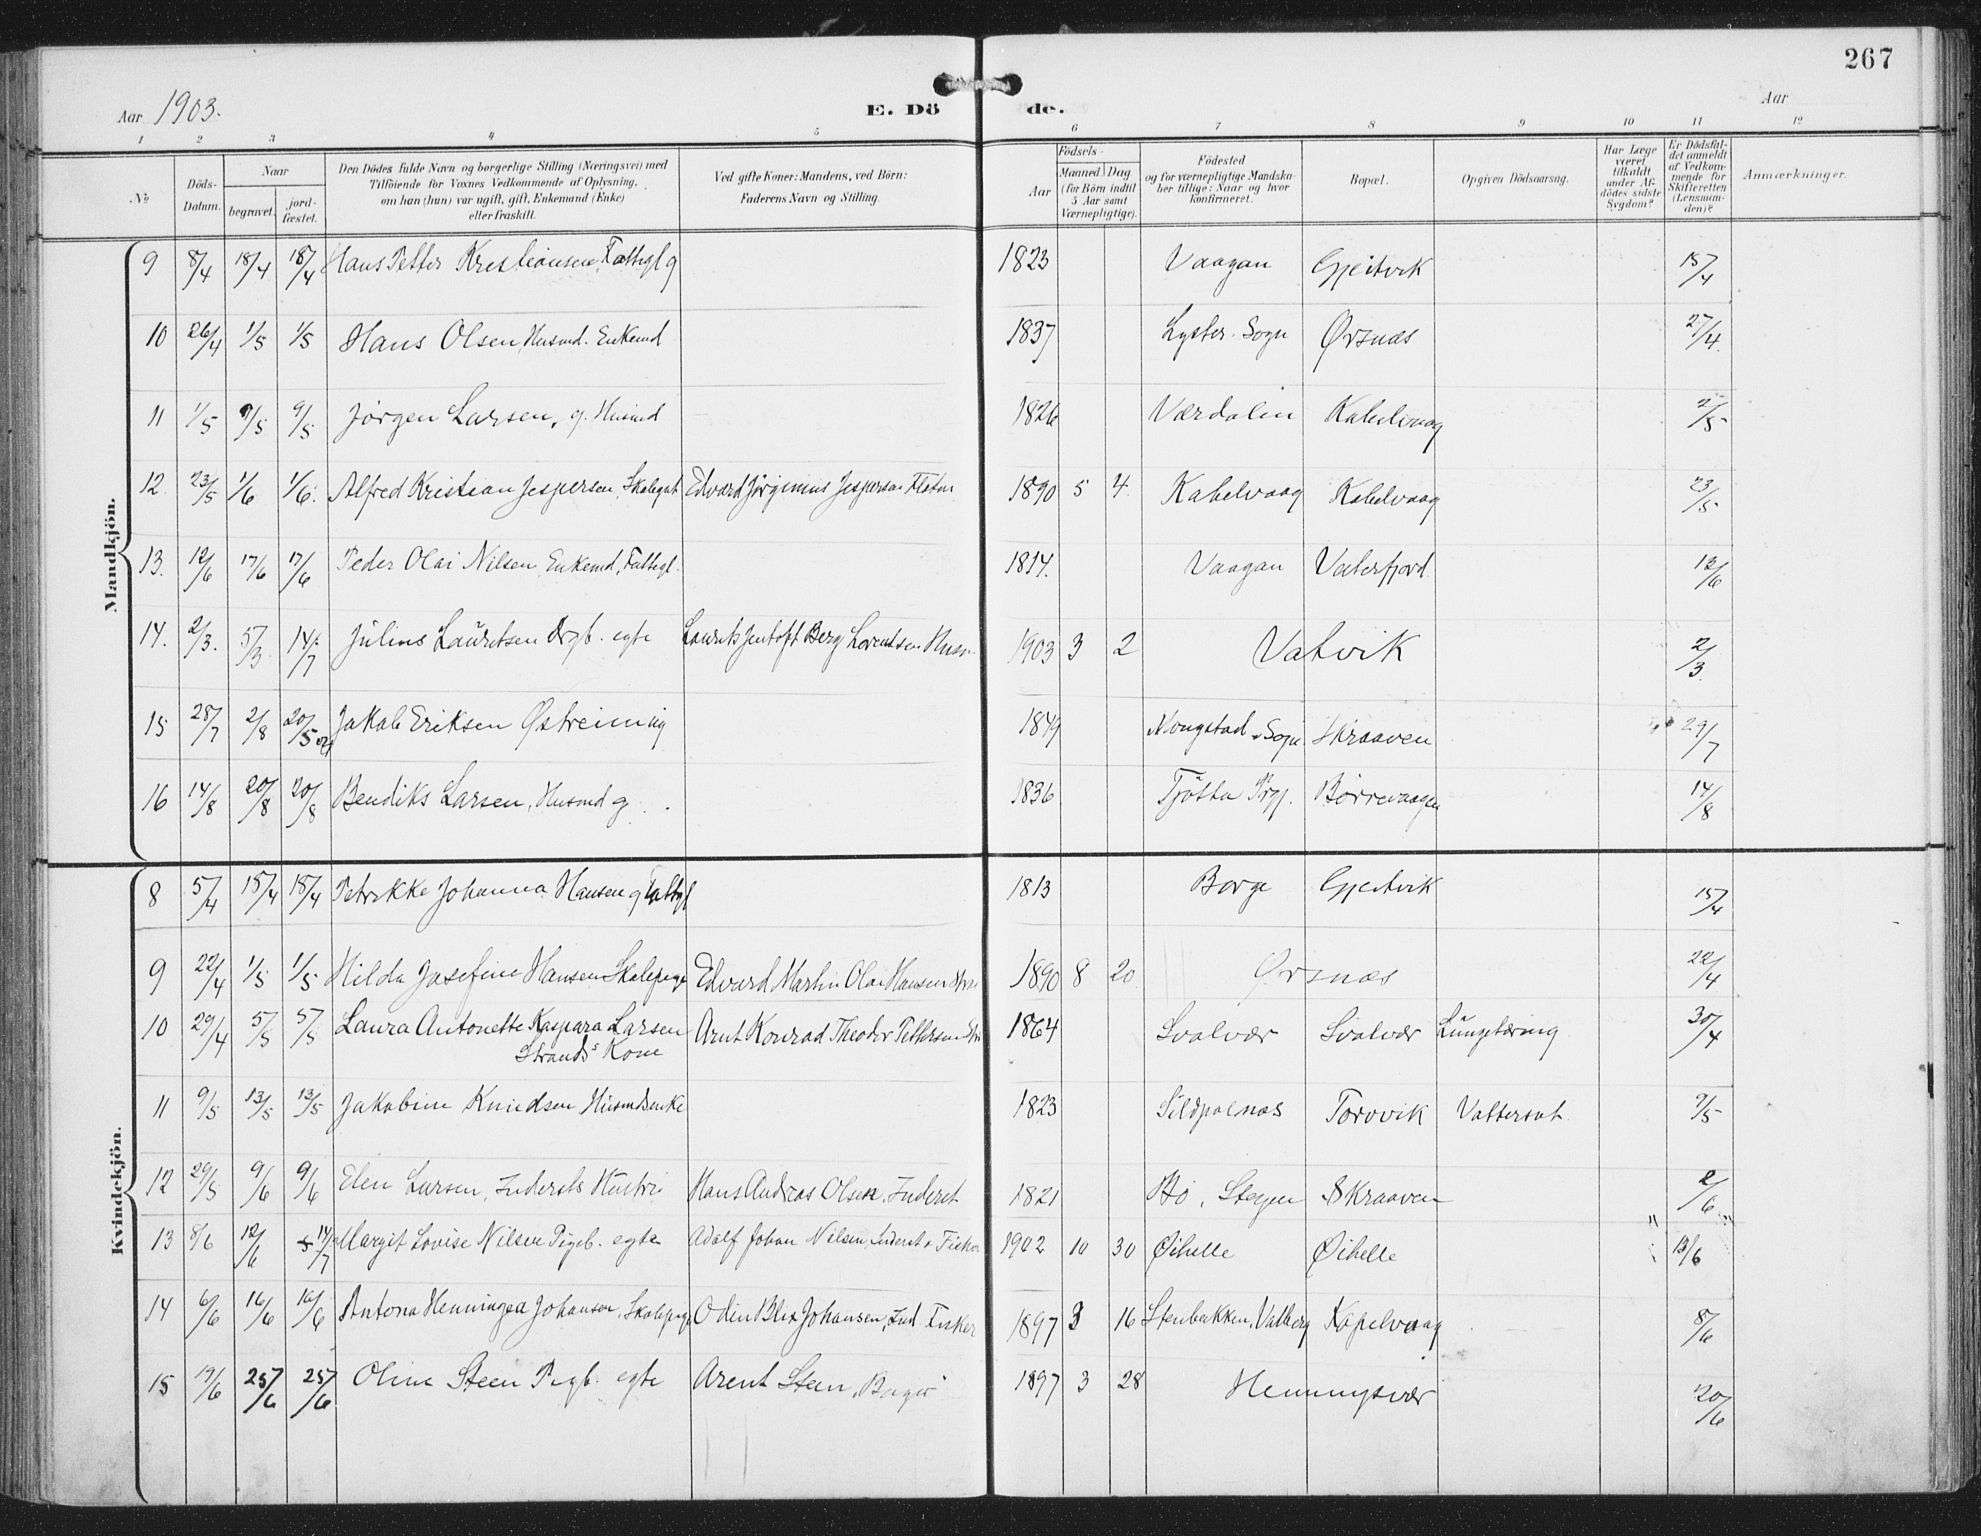 267
Aar 1903. E. Dö de. Aar
1 2 3 4 5 6 7 8 9 10 11 12
No
Döds-Datum.
Naar
begravet.
jord-fæstet.
Den Dödes fulde Navn og borgerlige Stilling (Næringsvei) med
Tilföiende for Voxnes Vedkommende af Oplysning,
om han (hun) var ugift, gift, Enkemand (Enke)
eller fraskilt.
Ved gifte Koner: Mandens, ved Börn:
Faderens Navn og Stilling
Födsels-
Aar
Maaned Dag
(for Börn indtil
5 Aar samt
Værnepligtige).
Födested
og for værnepligtige Mandska-
ber tillige: Naar og hvor
konfirmeret.
Bopæl.
Opgiven Dödsaarsag.
Har Læge
været
tilkaldt
under Af-
dödes sidste
Sygdom?
Er Dödsfal-
det anmeldt
af Vedkom-
mende for
Skifteretten
(Lensman-
den)?
Anmærkninger.
Mandkjön.
9 8/4 18/4 18/4 Hans Petter Kristiansen, Fattigl g 1823 Vaagan Gjeitvik 15/4
10 26/4 1/5 1/5 Hans Olsen, Husmd. Enkemd 1837 Lyster. Sogn Ørsnæs 27/4
11 1/5 9/5 9/5 Jørgen Larsen, g. Husmd 1826 Værdalen Kabelvaag 2/5
12. 23/5 1/6 1/6. Alfred Kristian Jespersen, Skolegut Edvard Jørginius Jespersen 1890 5 4 Kabelvaag Kabelvaag 23/5
13. 12/6 17/6 17/6 Peder Olai Nilsen Enkemd, Fattigl. 1814. Vaagan Vaterfjord 13/6
14. 2/3. 5/3 14/7 Julius Lauritsen Drgb. egte Laurits Jentoft Berg Lorentsen Husm 1903 3 2 Vatvik 2/3
15 28/7 2/8 20/5 04 Jakob Eriksen Østreim ug 1849 Sogn Skraaven 29/7
16 14/8 20/8 20/8 Bendiks Larsen, Husmd g. 1836 Tjøtta Prgj. Børrevaagen 14/8
Kvindekjön.
8 5/4 18/4 18/4 Petrikke Johanna Hansen g Fattigl 1813 Borge Gjeitvik 15/4
9 22/4 1/5 1/5 Hilda Josefine Hansen Skolepige Edvard Martin Olai Hansen 1890 8 20 Ørsnæs 22/4
10 29/4 5/5 5/5 Laura Antonette Kaspara Larsen Arnt Konrad Theodor Pettersen 1864 Svolvær Svolvær Lungetæring 30/4
Strands Kone
11 9/5 13/5 13/5 Jakobine Knudsen Husmdsenke 1823 Sildpolnæs Torvvik Vattersot 9/5
12 29/5 9/6 9/6 Elen Larsen, Indersts Hustru Hans Andreas Olsen, Inderst 1821 Bø, Stegen Skraaven 2/6
13 8/6 12/6 14/7 Margit Lovise Nilsen Pigeb. egte Adolf Johan Nilsen, Inderst o Fisker 1902 10 30 Øihelle Øihelle 13/6
14 6/6 16/6 16/6 Antona Henningea Johansen, Skolepige Odin Blix Johansen, Ind. Fisker 1897 3 16 Stenbakken, Valberg Kapelvaag 8/6
15 19/6 25/6 25/6 Oline Steen Pigb. egte Arent Steen, 1897 3 28 Henningsvær 20/6